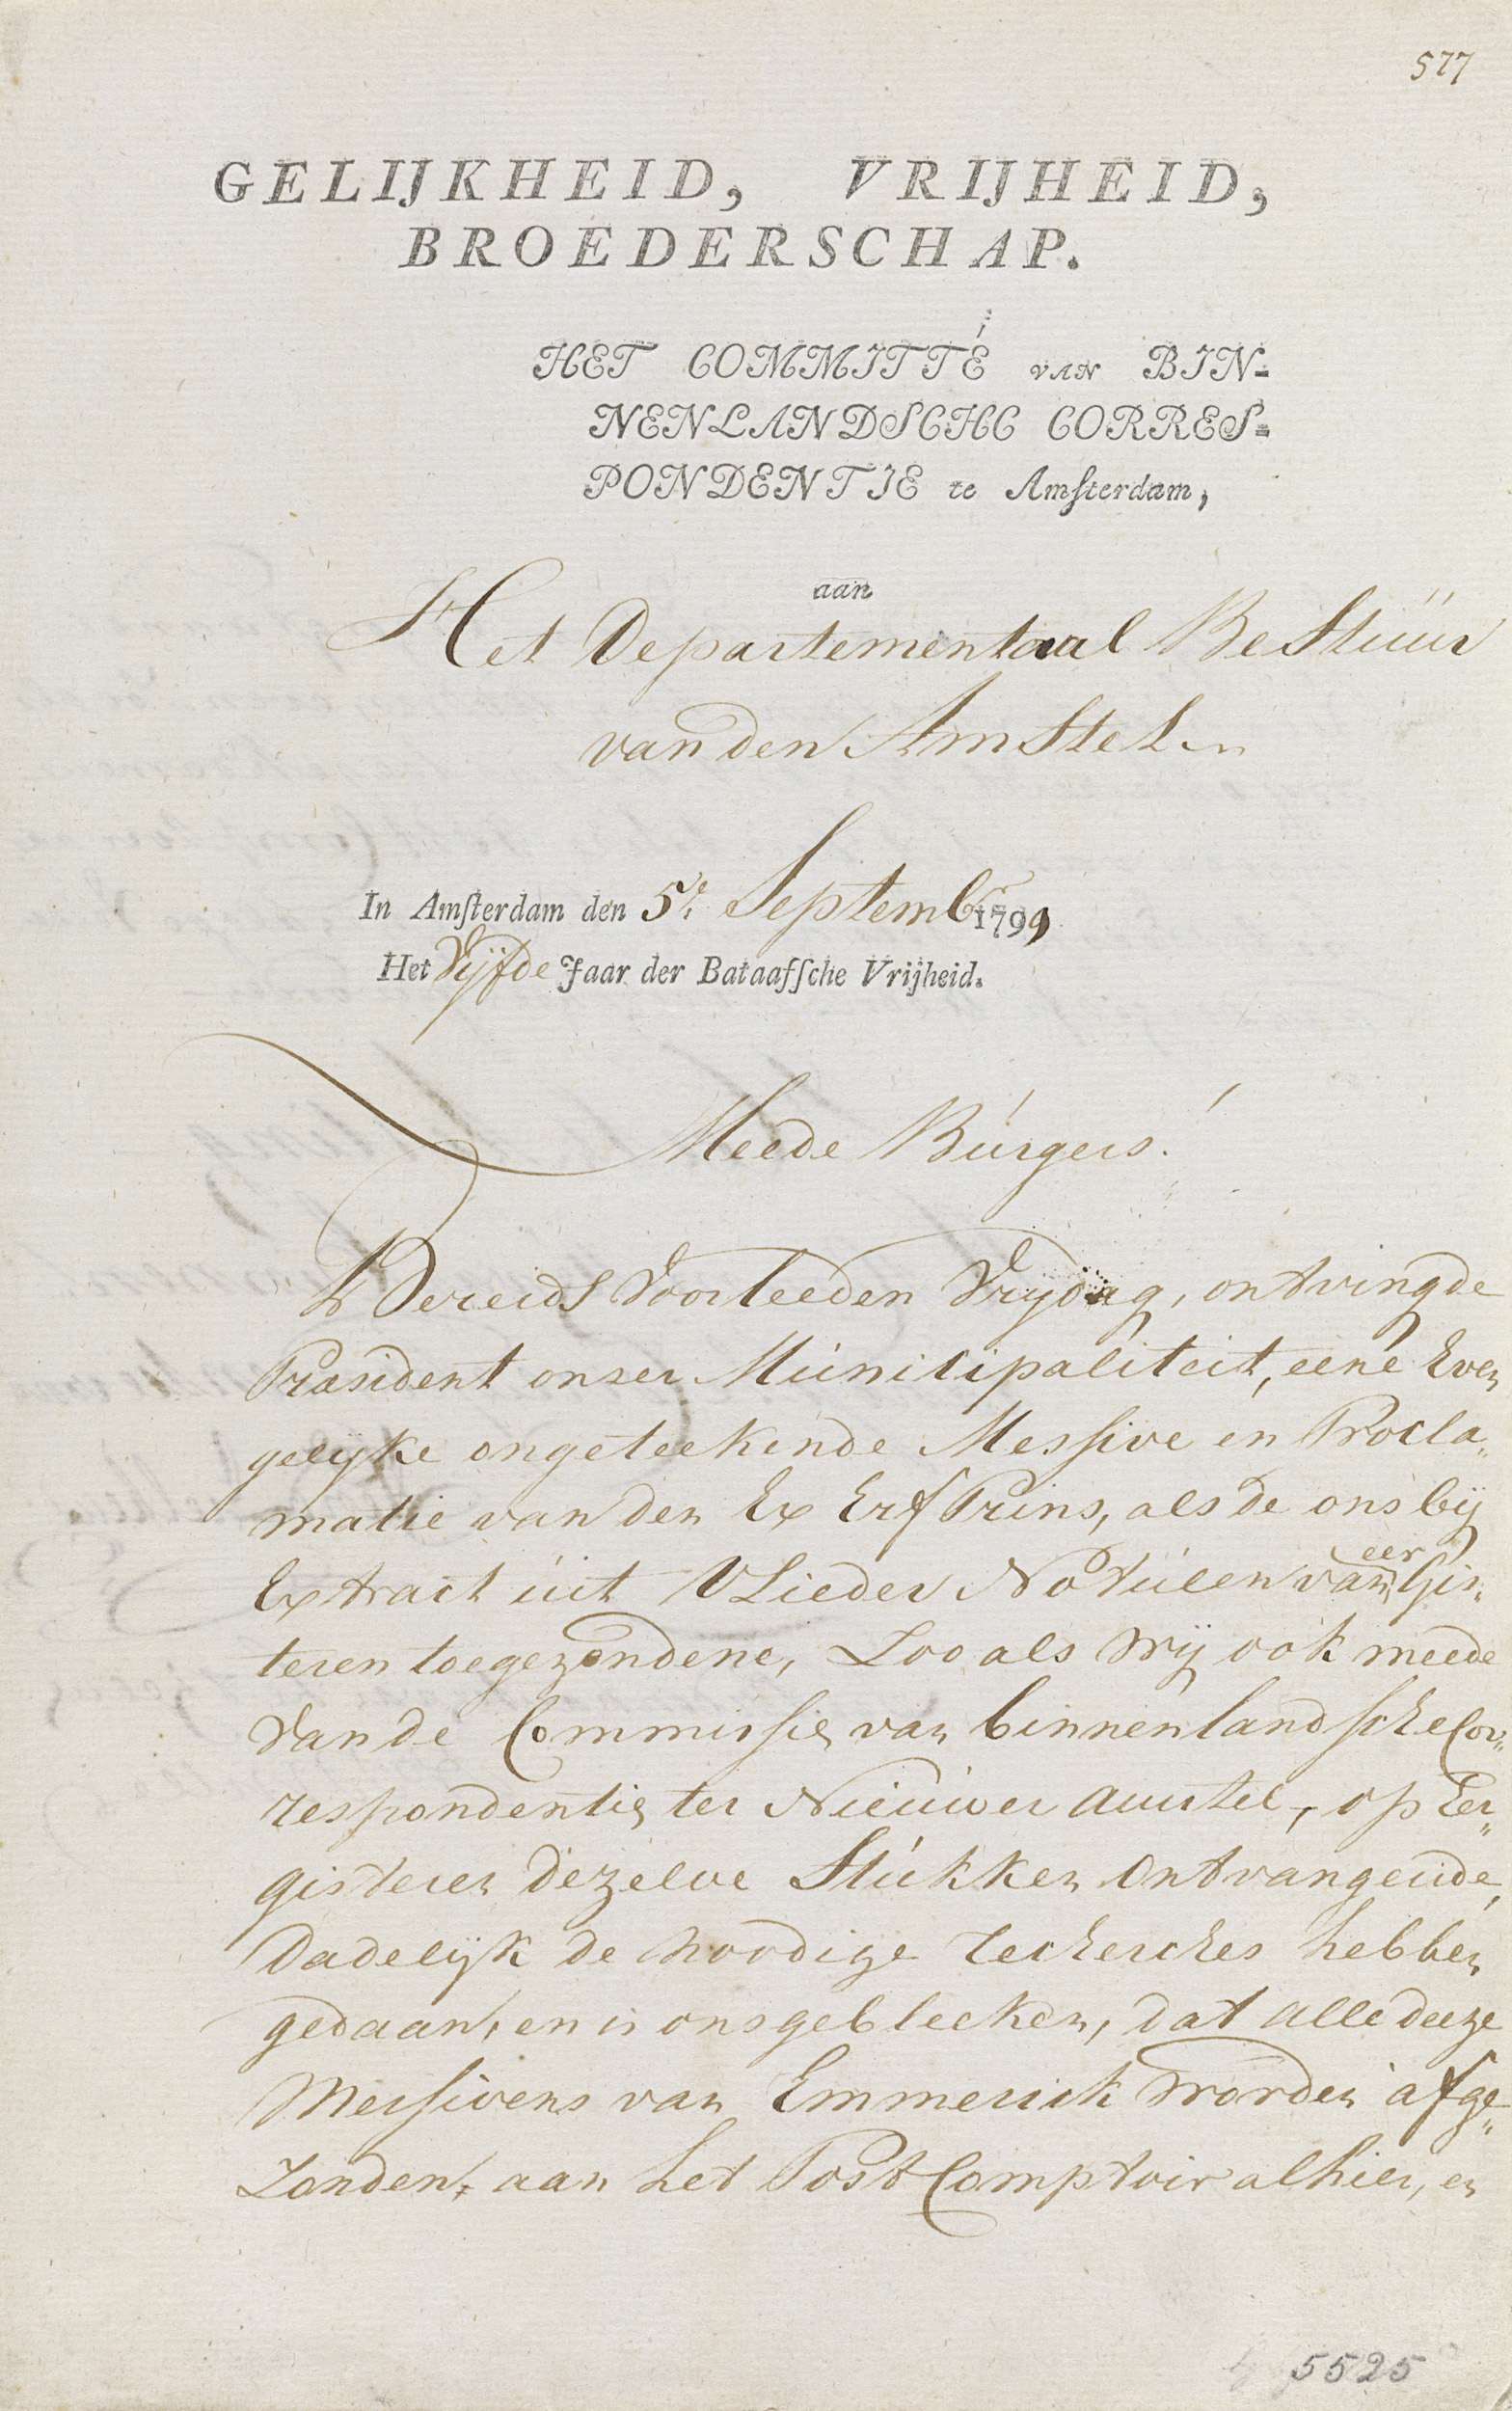 577
GELIJKHEID, VRIJHEID,
BROEDERSCHAP.
HET COMMITTÉ VAN BIN=
NENLANDSCHE CORRES=
PONDENTIE te Amsterdam,
aan
Het Departementaal BeStuur
van den AmStel
In Amsterdam den 5e September 1799
Het Vijfde Jaar der Bataafsche Vrijheid.
Meede Burgers!
Bereids Voorleeden Vrydag, ontving de
Præsident onzer Municipaliteit, eene Even
gelyke ongeteekende Messive en Procla„
matie van den Ex Erf Prins, als de ons bij
Extract uit ULieder Notulen van eer Gis„
teren toegezondene, Zoo als wij ook meede
van de Commissie van binnenlandsche Cor„
respondentie ter Nieuwer Amstel, op Eer„
gisteren dezelve Stukken Ontvangende,
Dadelijk de noodige recherches hebben
gedaan, en is ons gebleeken, dat alle deeze
Messivens van Emmerick worden afge„
zonden, aan het Post Comptoir alhier, en
5525